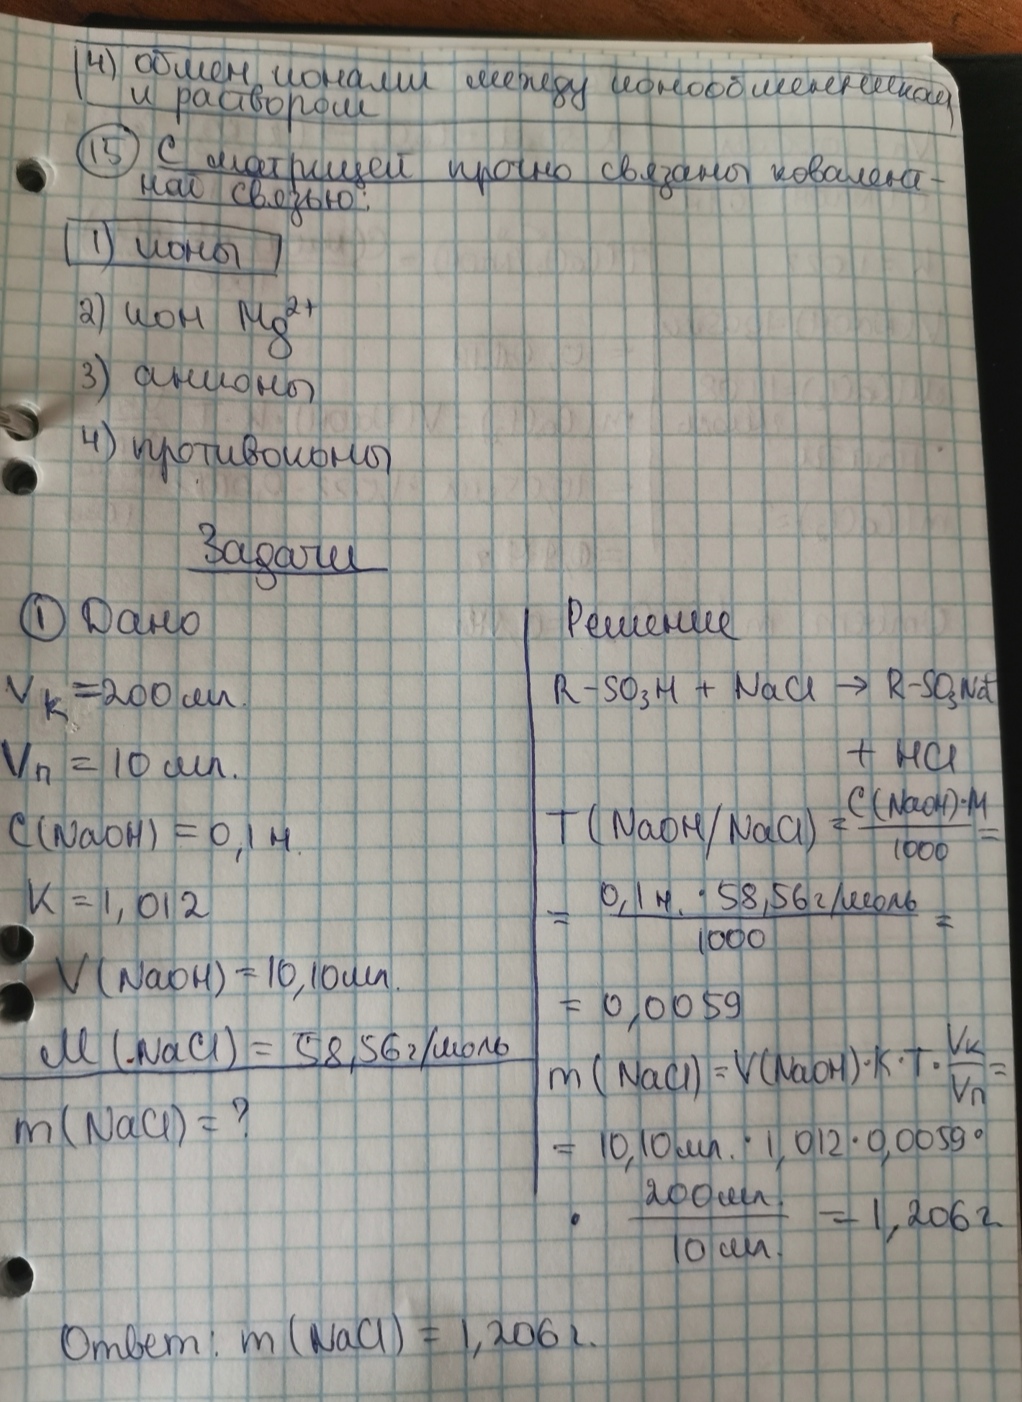 4) обмен ионами между ионообменником
и раствором
15) С матрицей прочно связаны ковалент-
ной связью:
1) ионы
2) ион Mg²⁺
3) анионы
4) противоионы
Задачи
① Дано
Vк = 200 мл.
Vп = 10 мл.
C(NaOH) = 0,1 н.
K = 1,012
V(NaOH) = 10,10 мл.
M(NaCl) = 58,56 г/моль
m(NaCl) = ?
Решение
R-SO₃H + NaCl → R-SO₃Na
+ HCl
T(NaOH/NaCl) = C(NaOH)·M / 1000 =
= 0,1 н. · 58,56 г/моль / 1000 =
= 0,0059
m(NaCl) = V(NaOH)·K·T· Vк/Vп =
= 10,10 мл. · 1,012 · 0,0059 ·
· 200 мл. / 10 мл. = 1,206 г.
Ответ: m(NaCl) = 1,206 г.